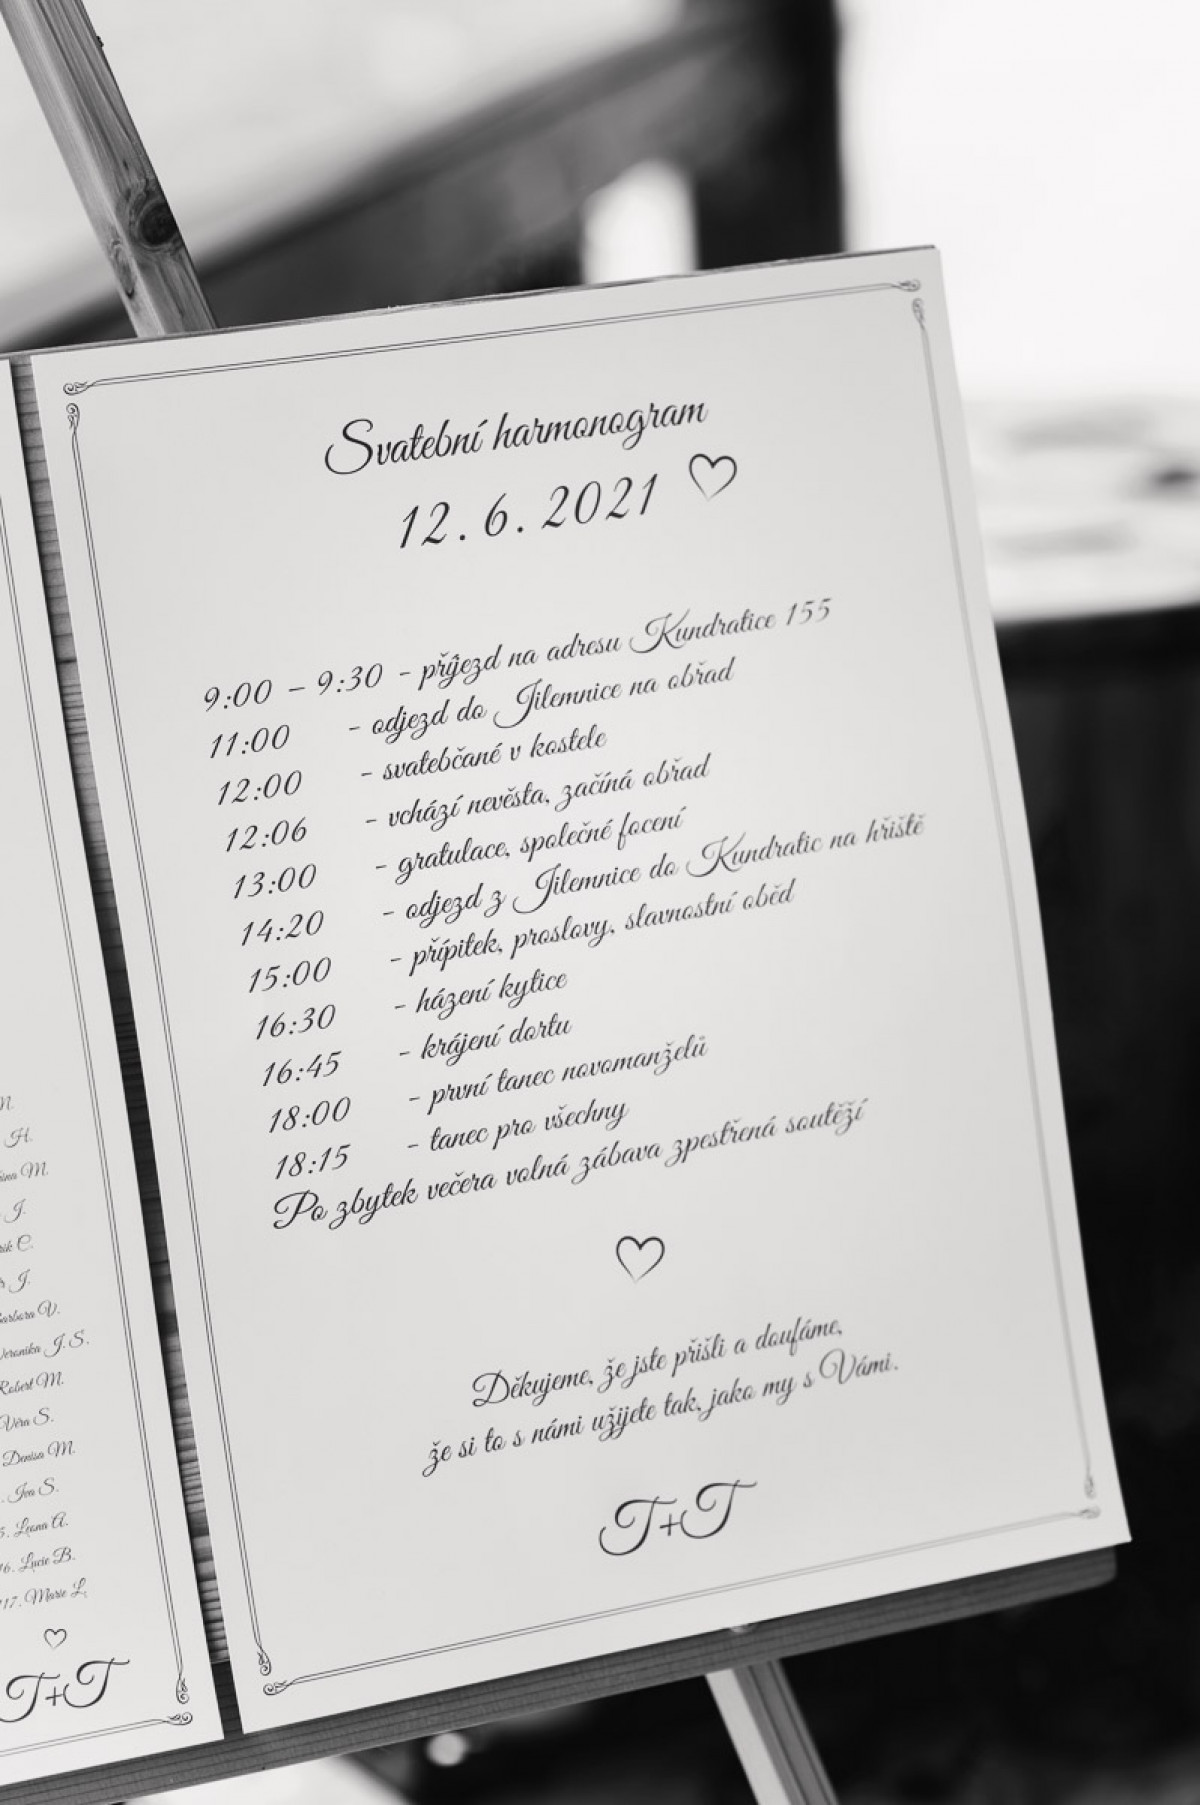 Svatební harmonogram
12.6.2021
9:00 – 9:30 - příjezd na adresu Kundratice 155
11:00 - odjezd do Jilemnice na obřad
12:00 - svatebčané v kostele
12:06 - vchází nevěsta, začíná obřad
13:00 - gratulace, společné focení
14:20 - odjezd z Jilemnice do Kundratic na hřiště
15:00 - přípitek, proslovy, slavnostní oběd
16:30 - házení kytice
16:45 - krájení dortu
18:00 - první tanec novomanželů
18:15 - tanec pro všechny
Po zbytek večera volná zábava zpestřená soutěží
Děkujeme, že jste přišli a doufáme,
že si to s námi užijete tak, jako my s Vámi.
T+T
M.
H.
M.
J.
C.
J.
Barbora V.
Veronika J.S.
Robert M.
Věra S.
Denisa M.
Iva S.
Leona A.
Lucie B.
17. Marie L.
T+T